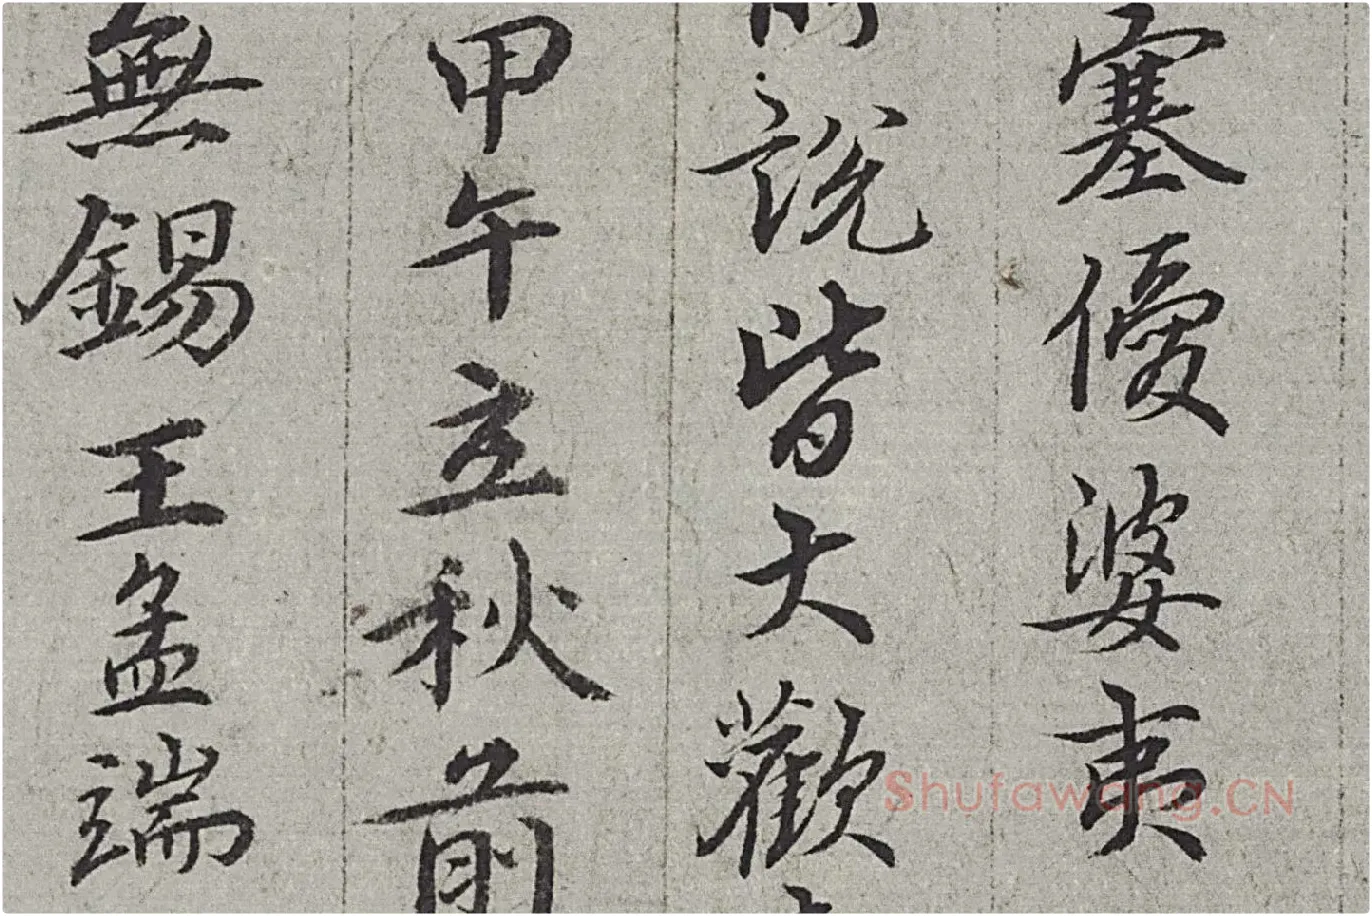 塞優婆夷
所說皆大歡
甲午立秋前
無錫王孟端
Shufawang.CN